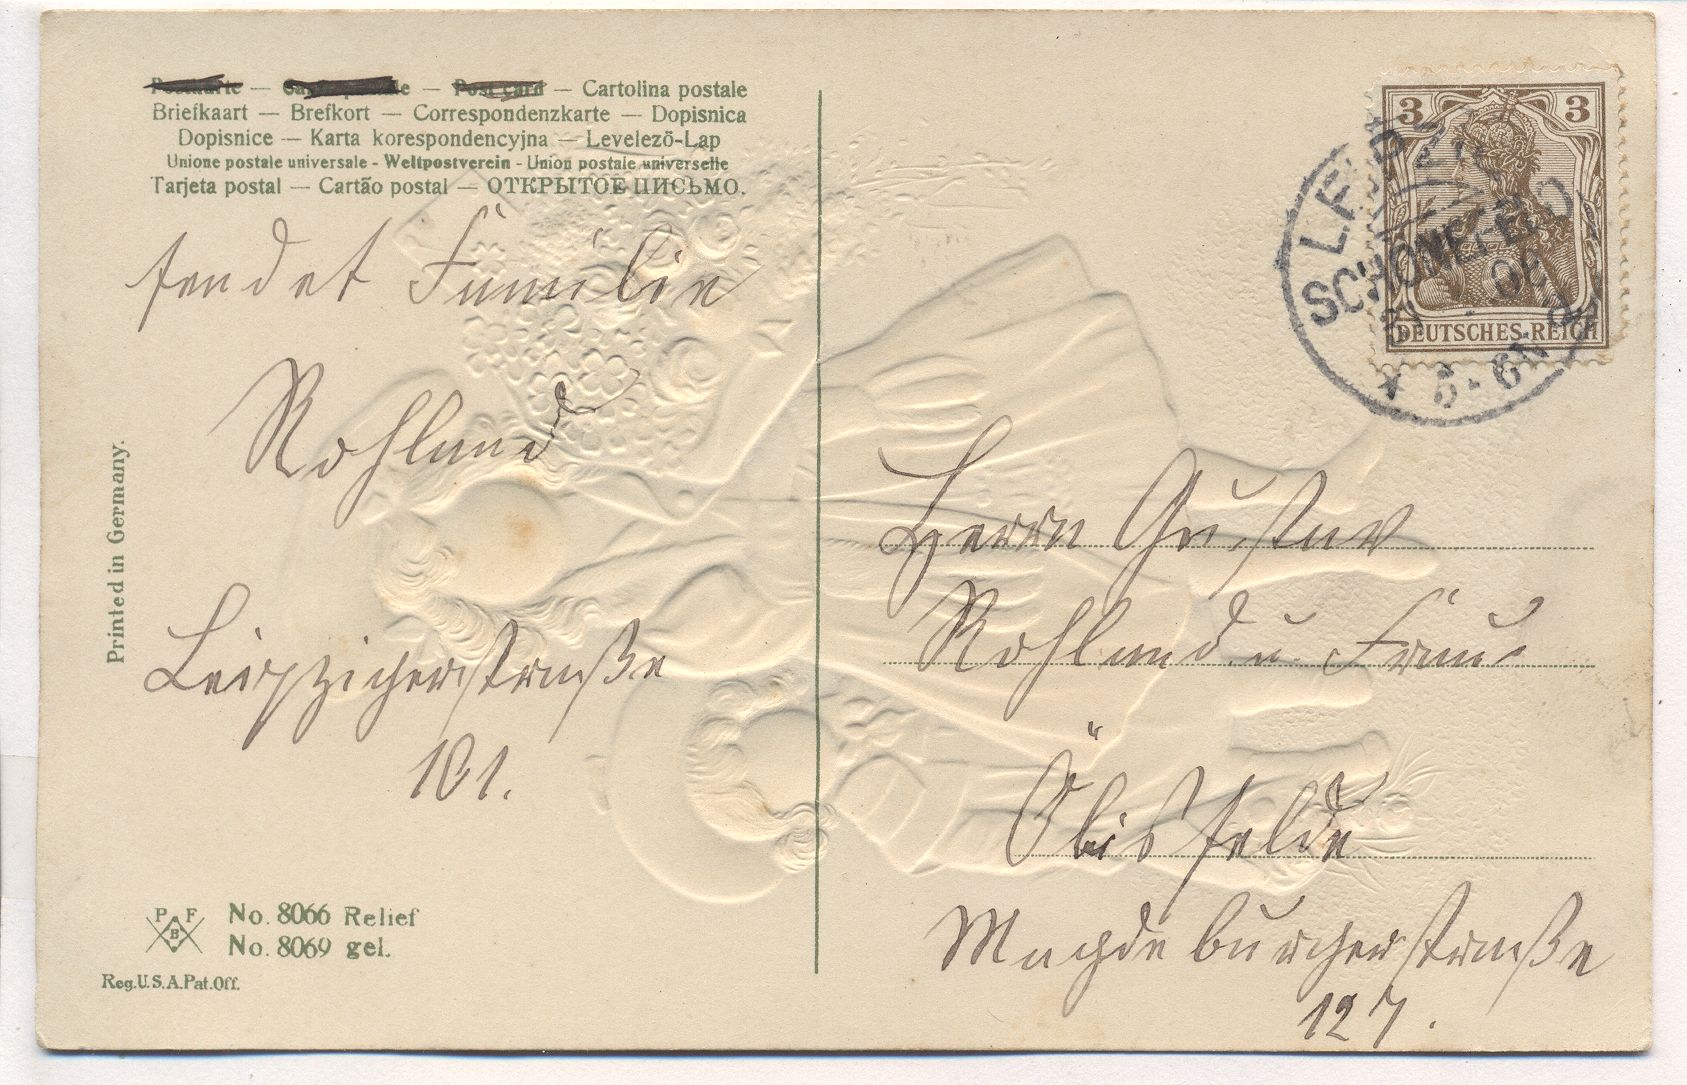 Postkarte — Carte postale — Post card — Cartolina postale
Briefkaart — Brefkort — Correspondenzkarte — Dopisnica
Dopisnice — Karta korespondencyjna — Levelező-Lap
Unione postale universale - Weltpostverein - Union postale universelle
Tarjeta postal — Cartão postal — ОТКРЫТОЕ ПИСЬМО.
sendet Familie
Rohland
Leipzigerstraße
101.
Printed in Germany.
P F
B
No. 8066 Relief
No. 8069 gel.
Reg.U.S.A.Pat.Off.
3 3
DEUTSCHES REICH
SCHÖNEFELD
* 5-6N
Herrn Gustav
Rohland u. Frau
Öbisfelde
Magdeburgerstraße
127.